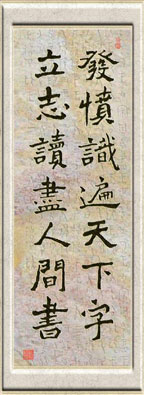 發憤識遍天下字
立志讀盡人間書